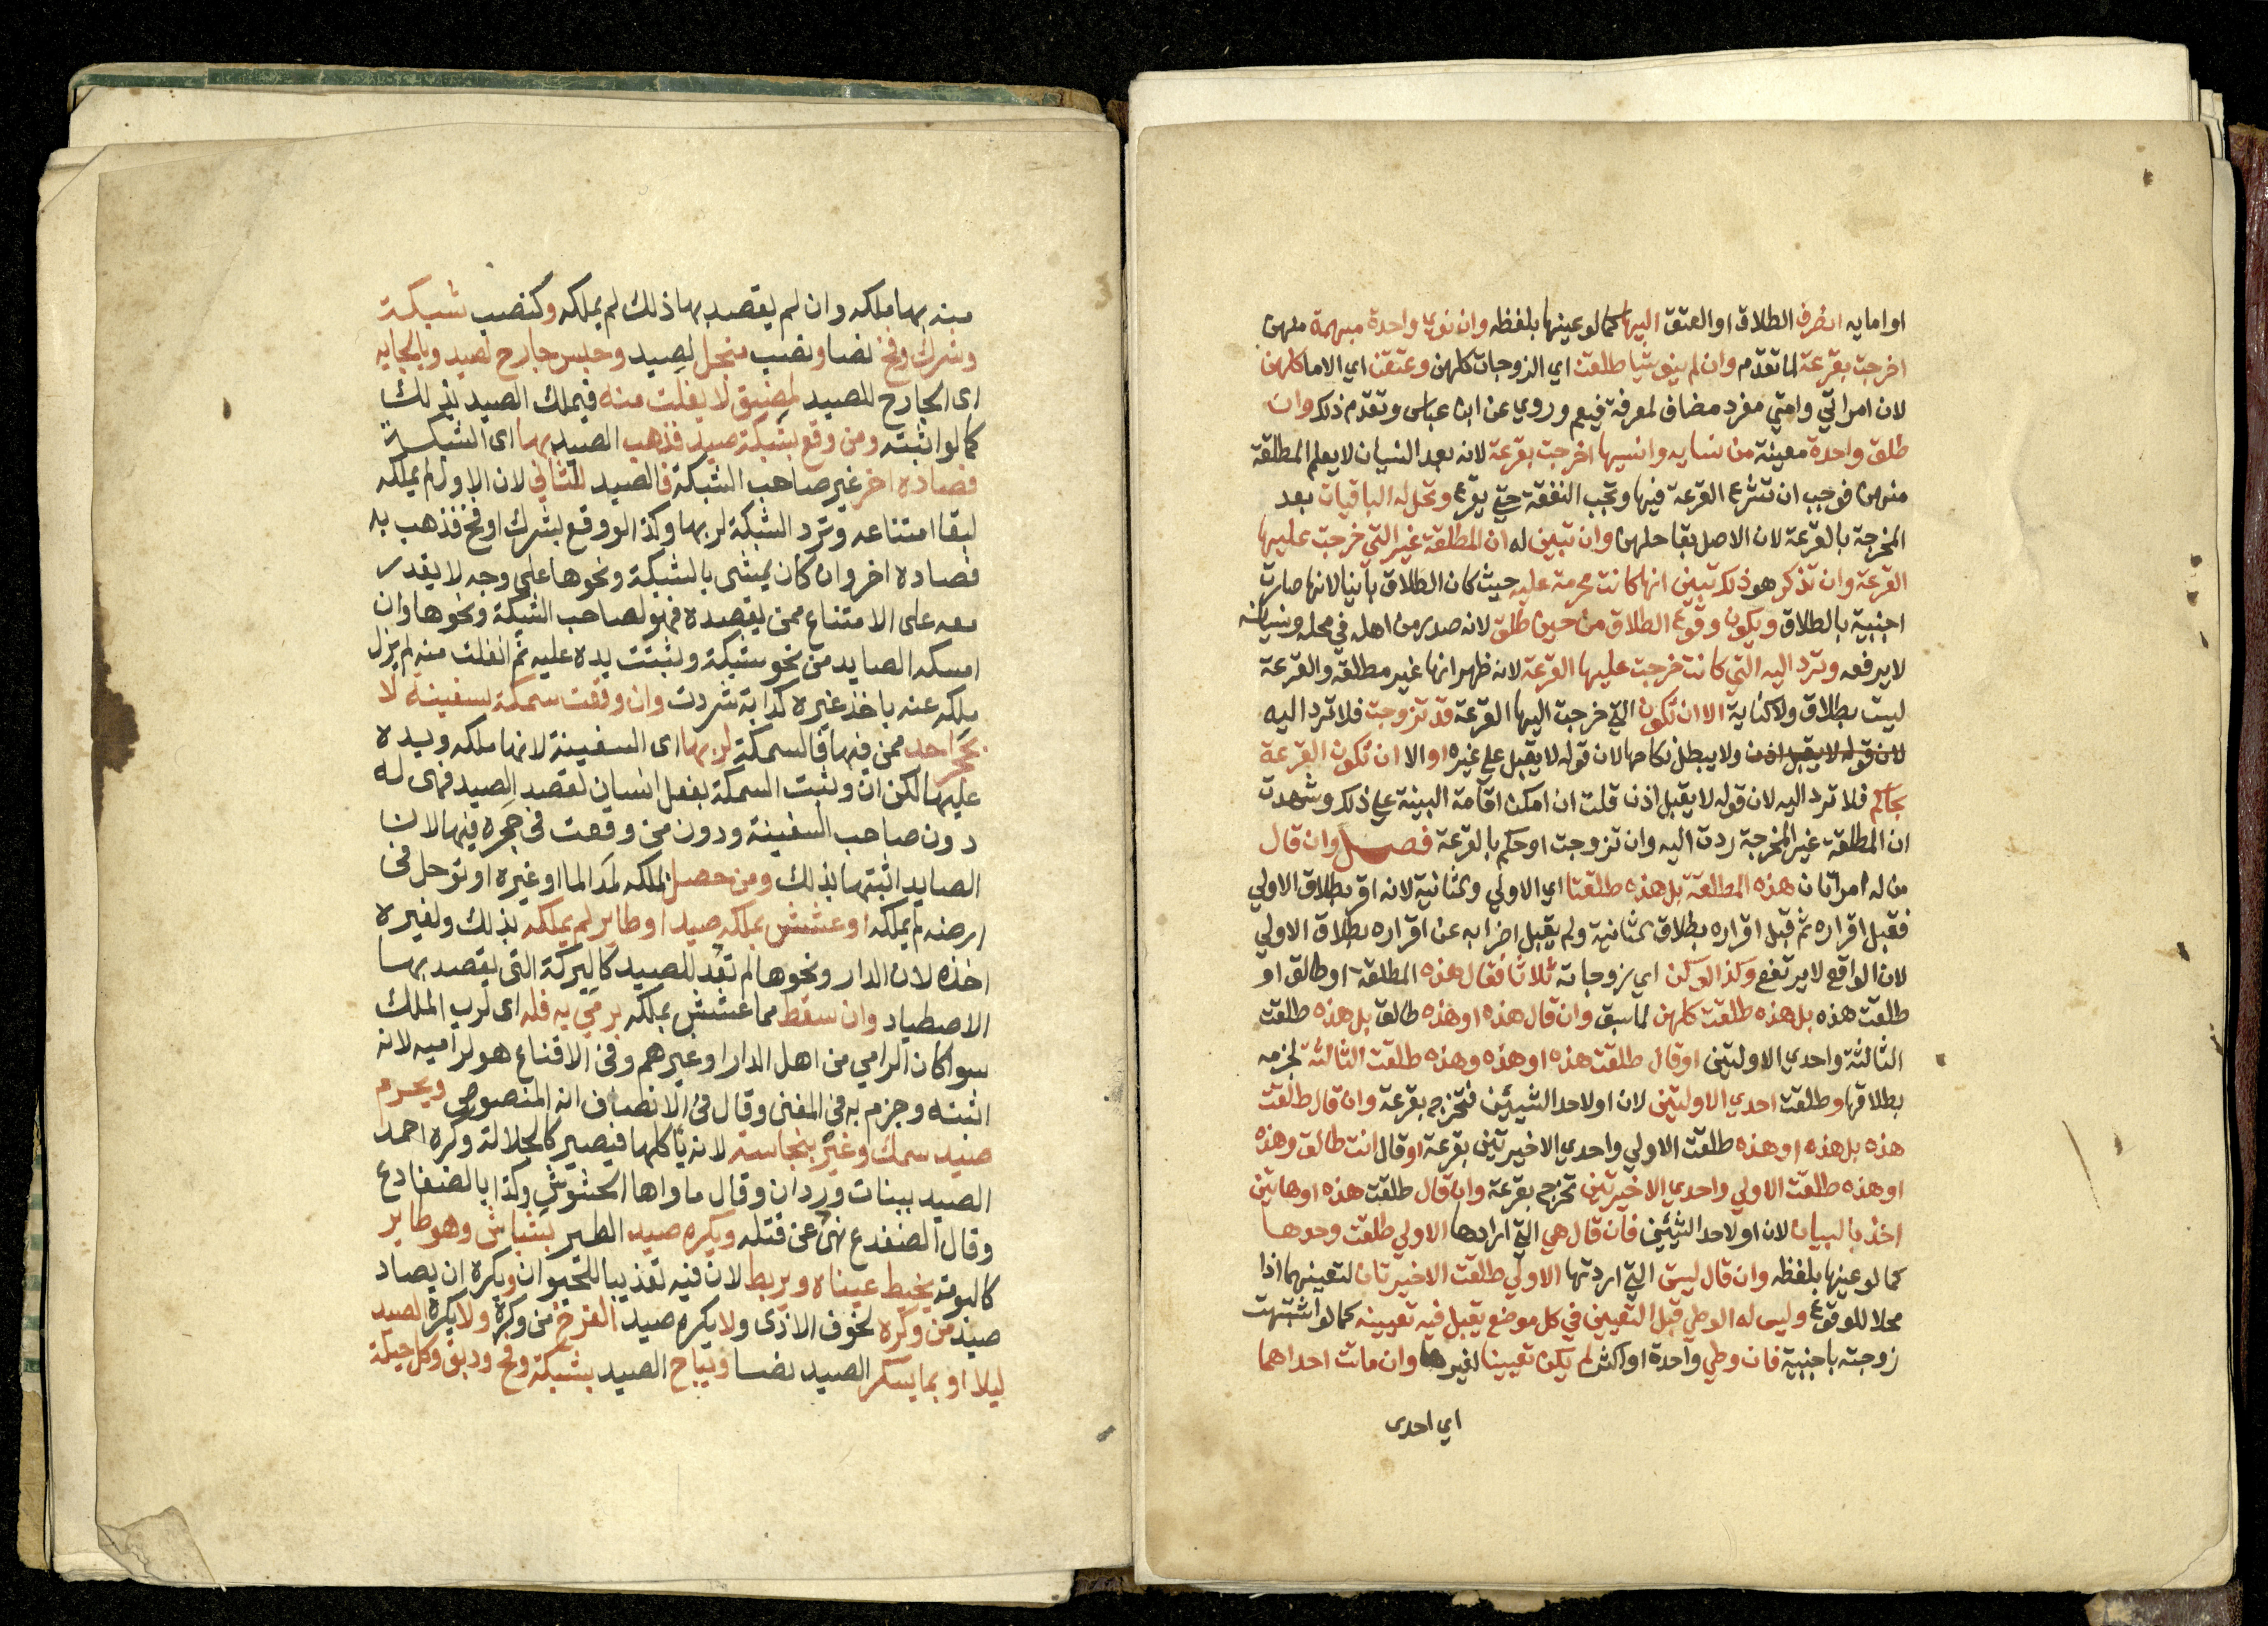 او امايه انصرف الطلاق او العتق اليها كما لو عينها بلفظه وان نوى واحدة مبهمة منهن
اخرجت بقرعة لما تقدم وان لم ينو شيا طلقت اي الزوجات كلهن وعتقن اي الاما كلهن
لان امراتي وامتي مفرد مضاف لمعرفة فيعم وروي عن ابن عباس وتقدم ذلك وان
طلق واحدة معينة من نسايه وانسيها اخرجت بقرعة لانه بعد النسيان لا يعلم المطلقة
منهن فوجب ان تشرع القرعة فيها وتجب النفقة حتى يقرع وتحل له الباقيات بعد
المخرجة بالقرعة لان الاصل بقا حلهن وان تبين له ان المطلقة غير التي خرجت عليها
القرعة وان تذكر هو ذلك تبين انها كانت محرمة عليه حيث كان الطلاق باينا لانها صارت
اجنبية بالطلاق ويكون وقوع الطلاق من حين طلق لانه صدر من اهله في محله ونسيانه
لا يرفعه وترد اليه التي كانت خرجت عليها القرعة لانه ظهر انها غير مطلقة والقرعة
ليست بطلاق ولا كناية الا ان تكون التي خرجت اليها القرعة قد تزوجت فلا ترد اليه
لان قوله لا يقبل اذن ولا يبطل نكاحها لان قوله لا يقبل على غيره او الا ان تكون القرعة
بحاكم فلا ترد اليه لان قوله لا يقبل اذن قلت ان امكن اقامة البينة على ذلك وشهدت
ان المطلقة غير المخرجة ردت اليه وان تزوجت او حكم بالقرعة فصل وان قال
من له امراتان هذه المطلقة بل هذه طلقتا اي الاولي والثانية لانه اقر بطلاق الاولي
فقبل اقراره ثم قبل اقراره بطلاق الثانية ولم يقبل اضرابه عن اقراره بطلاق الاولي
لان الواقع لا يرتفع وكذا لو كن اي زوجاته ثلاثا فقال هذه المطلقة او طالق او
طلقت هذه بل هذه طلقت كلهن لما سبق وان قال هذه او هذه طالق بل هذه طلقت
الثالثة واحدي الاوليتين او قال طلقت هذه او هذه وهذه طلقت الثالثة لجزمه
بطلاقها وطلقت احدي الاوليتين لان او لاحد الشيئين فتخرج بقرعة وان قال طلقت
هذه بل هذه او هذه طلقت الاولي واحدي الاخيرتين بقرعة او قال انت طالق وهذه
او هذه طلقت الاولي واحدي الاخيرتين تخرج بقرعة وان قال طلقت هذه او هاتين
اخذ بالبيان لان او لاحد الشيئين فان قال هي التي ارادها الاولي طلقت وحدها
كما لو عينها بلفظه وان قال ليست التي اردتها الاولي طلقت الاخيرتان لتعينهما اذا
محلا للوقوع وليس له الوطي قبل التعيين في كل موضع يقبل فيه تعيينه كما لو اشتبهت
زوجته باجنبية فان وطي واحدة او اكثر لم يكن تعيينا لغيرها وان ماتت احداهما
اي احدى
منه بها ملكه وان لم يقصد بها ذلك لم يملكه وكنصب شبكة
وشرك وفخ نصا ونصب منجل لصيد وحبس جارح لصيد وبالجايه
اى الجارح للصيد لمضيق لا يفلت منه فيملك الصيد بذلك
كما لو اثبته ومن وقع بشبكته صيد فذهب الصيد بها اى الشبكة
فصاده اخر غير صاحب الشبكة فالصيد للثاني لان الاول لم يملكه
لبقا امتناعه وترد الشبكة لربها وكذا لو وقع بشرك او فخ فذهب به
فصاده اخر وان كان يمشى بالشبكة ونحوها على وجه لا يقدر
معه على الامتناع ممن يقصده فهو لصاحب الشبكة ونحوها وان
امسكه الصايد من نحو شبكة وثبتت يده عليه ثم انفلت منه لم يزل
ملكه عنه باخذ غيره كدابة شردت وان وقعت سمكة بسفينة لا
بحجر احد ممن فيها فالسمكة لربها اى السفينة لانها ملكه ويده
عليها لكن ان وثبت السمكة بفعل انسان لقصد الصيد فهى له
دون صاحب السفينة ودون من وقعت فى حجره فيها لان
الصايد اثبتها بذلك ومن حصل بملكه لمد الما او غيره او توحل فى
ارضه لم يملكه او عشش بملكه صيد او طاير لم يملكه بذلك ولغيره
اخذه لان الدار ونحوها لم تعد للصيد كالبركة التى يقصد بها
الاصطياد وان سقط مما عشش بملكه برمي به فله اى لرب الملك
سوا كان الرامي من اهل الدار او غيرهم وفى الاقناع هو لراميه لانه
اثبته وجزم به فى المغنى وقال فى الانصاف انه المنصوص ويحرم
صيد سمك وغيره بنجاسة لانه ياكلها فيصير كالجلالة وكره احمد
الصيد ببنات وردان وقال ماواها الحشوش وكذا بالضفادع
وقال الضفدع نهى عن قتله ويكره صيد الطير بشباش وهو طاير
كالبومة يخيط عيناه ويربط لان فيه تعذيبا للحيوان ويكره ان يصاد
صيد من وكره لخوف الاذى ولا يكره صيد الفرخ من وكره ولا يكره الصيد
ليلا او بما يسكر الصيد نصا ويباح الصيد بشبكة وفخ ودبق وكل حيلة